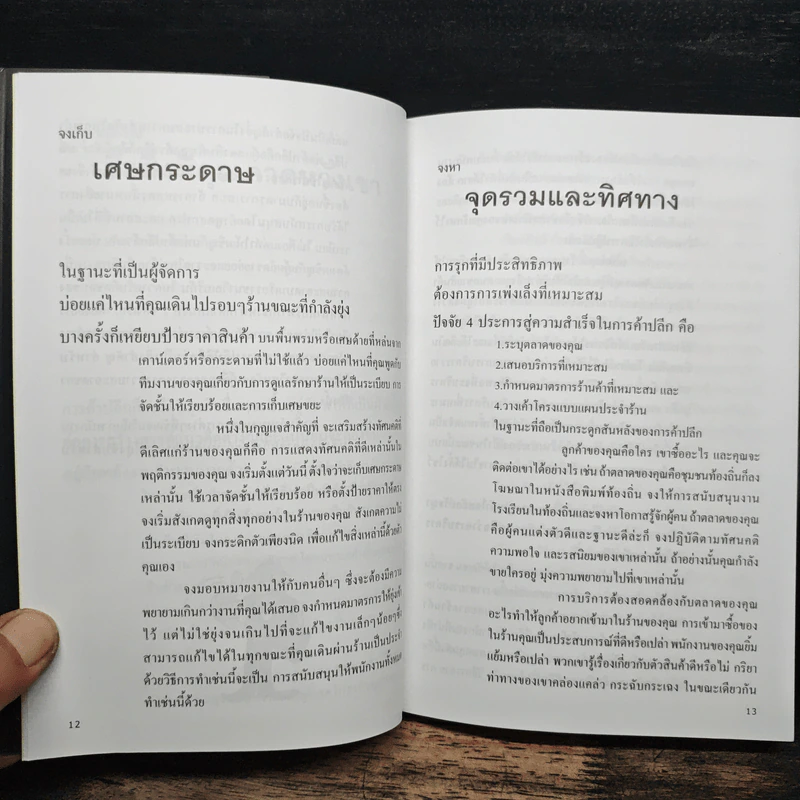 จงเก็บ
เศษกระดาษ
ในฐานะที่เป็นผู้จัดการ
บ่อยแค่ไหนที่คุณเดินไปรอบๆร้านขณะที่กำลังยุ่ง
บางครั้งก็เหยียบป้ายราคาสินค้า บนพื้นพรมหรือเศษด้ายที่หล่นจาก
เคาน์เตอร์หรือกระดาษที่ไม่ใช้แล้ว บ่อยแค่ไหนที่คุณพูดกับ
ทีมงานของคุณเกี่ยวกับการดูแลรักษาร้านให้เป็นระเบียบ การ
จัดชั้นให้เรียบร้อยและการเก็บเศษขยะ
หนึ่งในกุญแจสำคัญที่ จะเสริมสร้างทัศนคติที่
ดีเลิศแก่ร้านของคุณก็คือ การแสดงทัศนคติที่ดีเหล่านั้นใน
พฤติกรรมของคุณ จงเริ่มตั้งแต่วันนี้ ตั้งใจว่าจะเก็บเศษกระดาษ
เหล่านั้น ใช้เวลาจัดชั้นให้เรียบร้อย หรือตั้งป้ายราคาให้ตรง
จงเริ่มสังเกตดูทุกสิ่งทุกอย่างในร้านของคุณ สังเกตความไม่
เป็นระเบียบ จงกระดิกตัวเพียงนิด เพื่อแก้ไขสิ่งเหล่านี้ด้วยตัว
คุณเอง
จงมอบหมายงานให้กับคนอื่นๆ ซึ่งจะต้องมีความ
พยายามเกินกว่างานที่คุณได้เสนอ จงกำหนดมาตรการให้ยุ่งเข้า
ไว้ แต่ไม่ใช่ยุ่งจนเกินไปที่จะแก้ไขงานเล็กๆน้อยๆซึ่ง
สามารถแก้ไขได้ในทุกขณะที่คุณเดินผ่านร้านเป็นประจำ
ด้วยวิธีการทำเช่นนี้จะเป็น การสนับสนุนให้พนักงานทั้งหมด
ทำเช่นนี้ด้วย
12
จงหา
จุดรวมและทิศทาง
การรุกที่มีประสิทธิภาพ
ต้องการการเพ่งเล็งที่เหมาะสม
ปัจจัย 4 ประการสู่ความสำเร็จในการค้าปลีก คือ
1.ระบุตลาดของคุณ
2.เสนอบริการที่เหมาะสม
3.กำหนดมาตรการร้านค้าที่เหมาะสม และ
4.วางเค้าโครงแบบแผนประจำร้าน
ในฐานะที่ถือเป็นกระดูกสันหลังของการค้าปลีก
ลูกค้าของคุณคือใคร เขาซื้ออะไร และคุณจะ
ติดต่อเขาได้อย่างไร เช่น ถ้าตลาดของคุณคือชุมชนท้องถิ่นก็ลง
โฆษณาในหนังสือพิมพ์ท้องถิ่น จงให้การสนับสนุนงาน
โรงเรียนในท้องถิ่นและจงหาโอกาสรู้จักผู้คน ถ้าตลาดของคุณ
คือผู้คนแต่งตัวดีและฐานะดีล่ะก็ จงปฏิบัติตามทัศนคติ
ความพอใจ และรสนิยมของเขาเหล่านั้น ถ้าอย่างนั้นคุณกำลัง
ขายใครอยู่ มุ่งความพยายามไปที่เขาเหล่านั้น
การบริการต้องสอดคล้องกับตลาดของคุณ
อะไรทำให้ลูกค้าอยากเข้ามาในร้านของคุณ การเข้ามาซื้อของ
ในร้านคุณเป็นประสบการณ์ที่ดีหรือเปล่า พนักงานของคุณยิ้ม
แย้มหรือเปล่า พวกเขารู้เรื่องเกี่ยวกับตัวสินค้าดีหรือไม่ กริยา
ท่าทางของเขาคล่องแคล่ว กระฉับกระเฉง ในขณะเดียวกัน
13